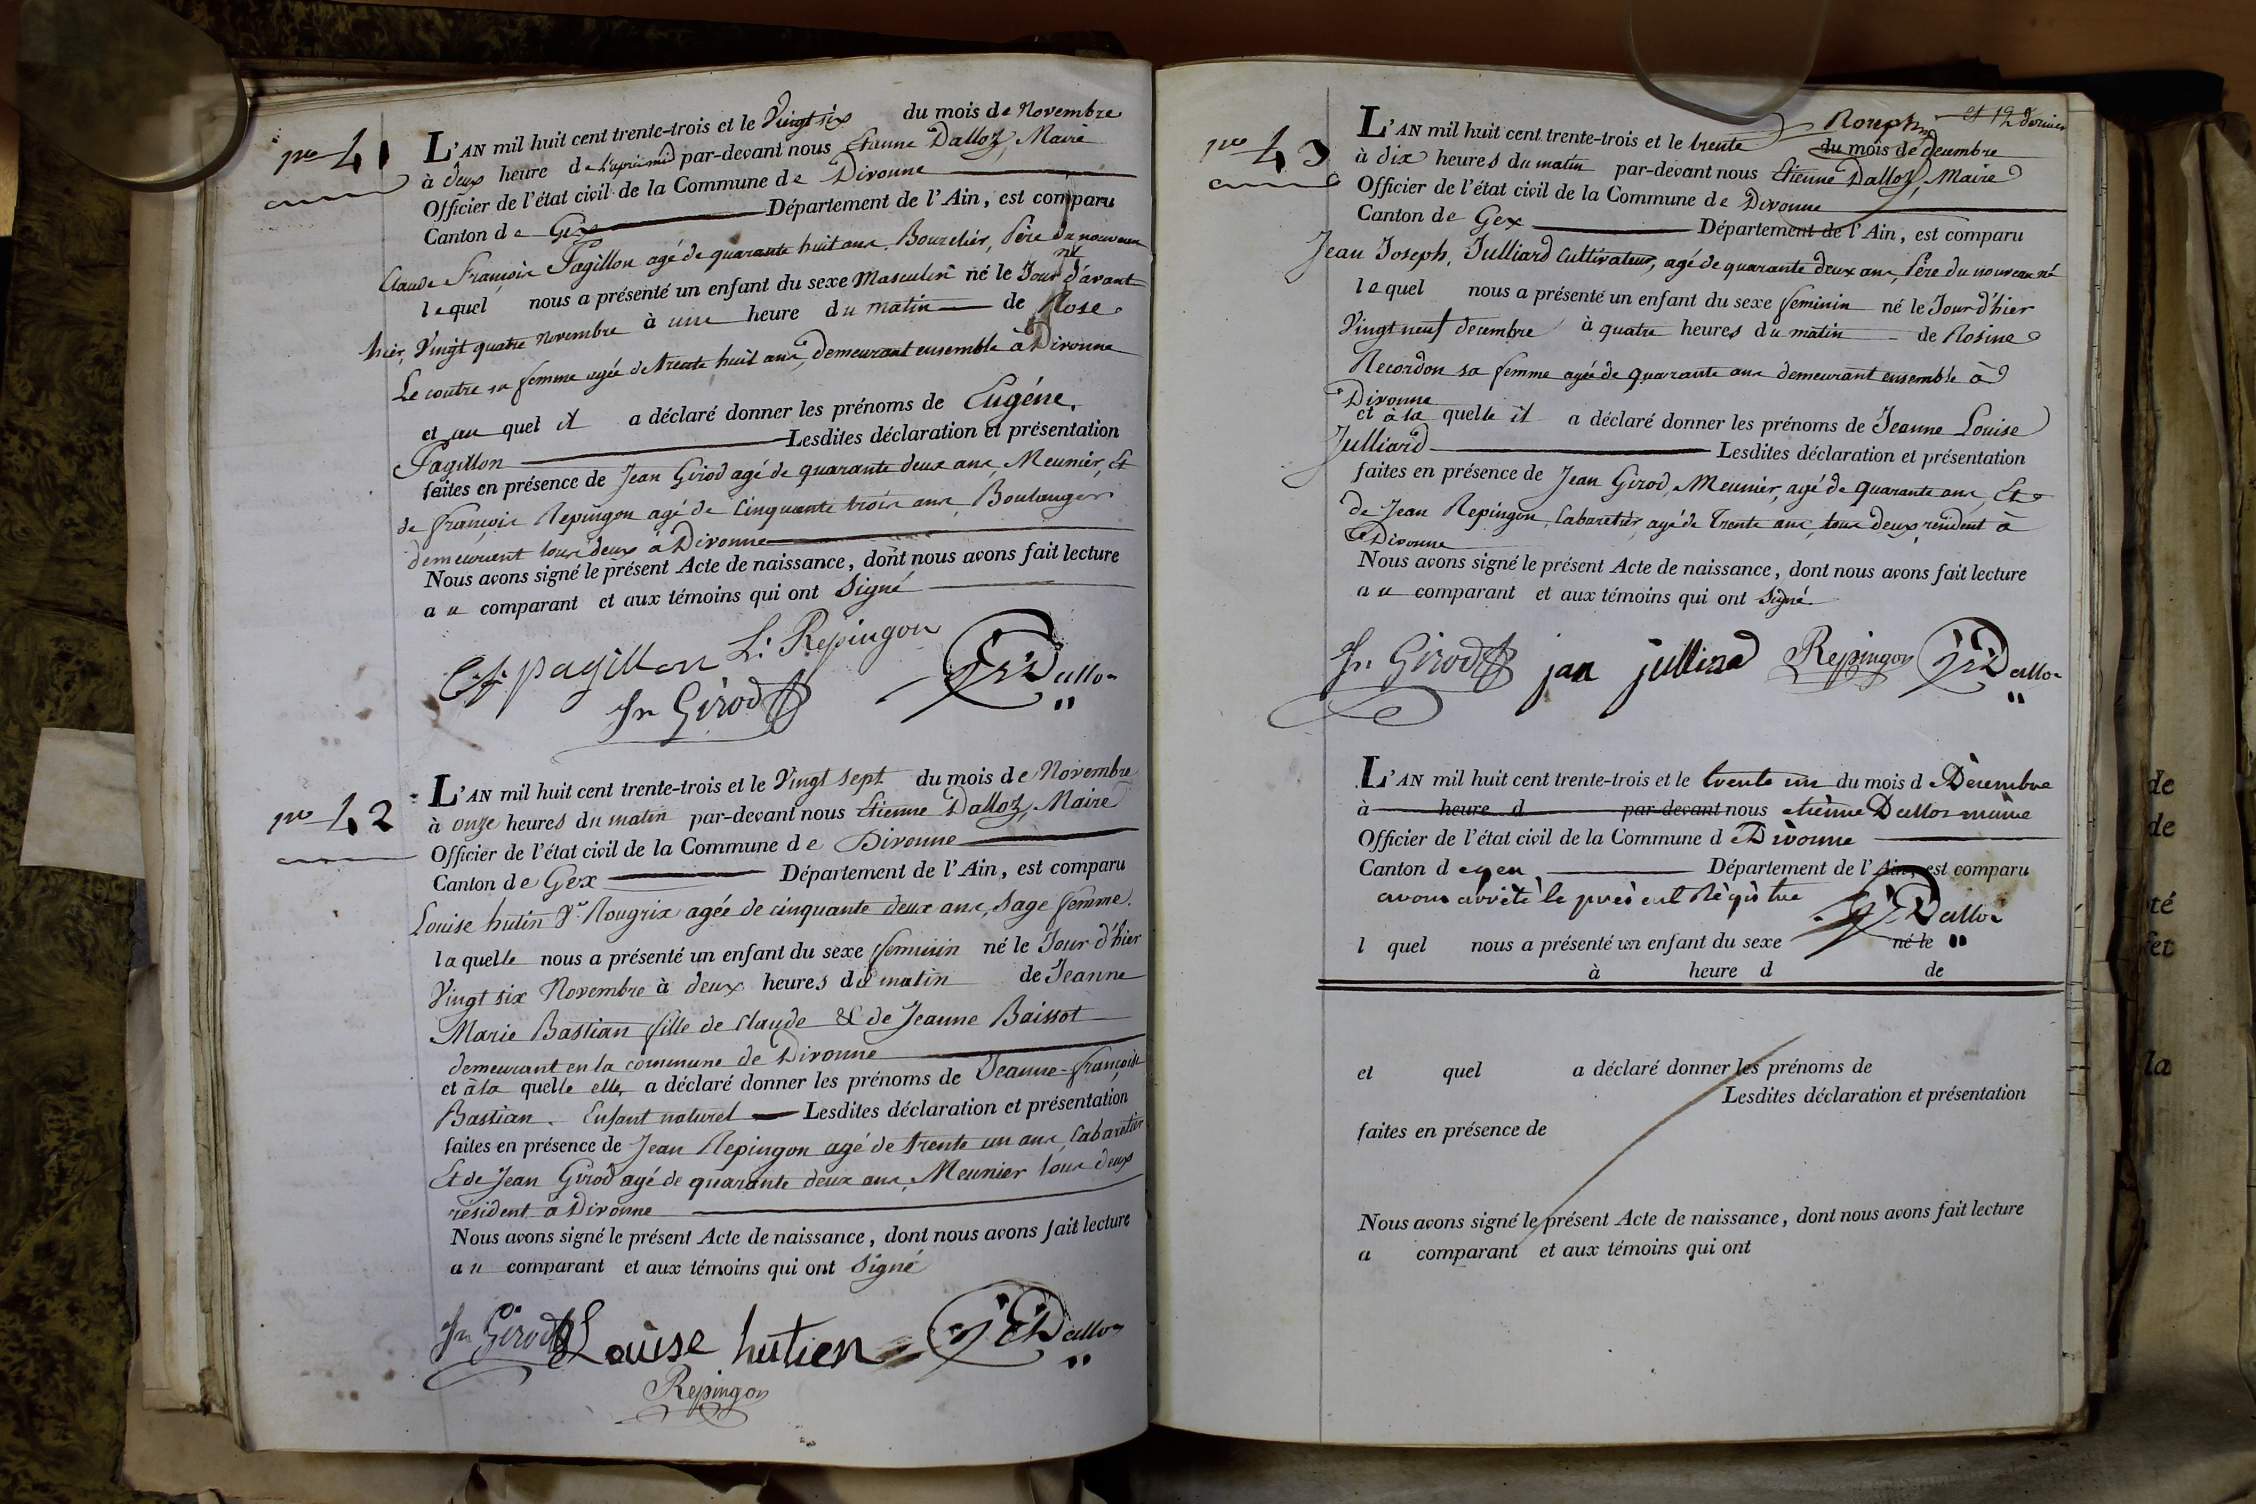 no 41
L'AN mil huit cent trente-trois et le Vingt six du mois de Novembre
à deux heure de l'après midi par-devant nous Etienne Dalloz, Maire
Officier de l'état civil de la Commune de Divonne
Canton de Gex Département de l'Ain, est comparu
Claude François Pagillon agé de quarante huit ans, Bourelier, Père du nouveau
né
lequel nous a présenté un enfant du sexe Masculin né le Jour d'avant
hier, Vingt quatre Novembre à une heure du matin de Rose
Lecoultre sa femme agée de trente huit ans, demeurant ensemble à Divonne
et au quel il a déclaré donner les prénoms de Eugéne,
Pagillon Lesdites déclaration et présentation
faites en présence de Jean Girod agé de quarante deux ans, Meunier, Et
de françois Repingon agé de Cinquante trois ans, Boulanger
demeurant tous deux à Divonne
Nous avons signé le présent Acte de naissance, dont nous avons fait lecture
au comparant et aux témoins qui ont Signé
Cf pagillon L. Repingon
Jn Girod Dalloz
no 42
L'AN mil huit cent trente-trois et le Vingt sept du mois de Novembre
à onze heures du matin par-devant nous Etienne Dalloz, Maire
Officier de l'état civil de la Commune de Divonne
Canton de Gex Département de l'Ain, est comparu
Louise hutin Ve Rougrix agée de cinquante deux ans, Sage femme.
laquelle nous a présenté un enfant du sexe feminin né le Jour d'hier
Vingt six Novembre à deux heures du matin de Jeanne
Marie Bastian fille de Claude & de Jeanne Baissot
demeurant en la commune de Divonne
et à la quelle elle a déclaré donner les prénoms de Jeanne-françoise
Bastian. Enfant naturel Lesdites déclaration et présentation
faites en présence de Jean Repingon agé de trente un ans, Cabaretier
Et de Jean Girod agé de quarante deux ans, Meunier tous deux
résident à Divonne
Nous avons signé le présent Acte de naissance, dont nous avons fait lecture
au comparant et aux témoins qui ont Signé
Jn Girod Louise hutien Dalloz
Repingon
et 12 dernier
no 43
L'AN mil huit cent trente-trois et le trente du mois de decembre
à dix heures du matin par-devant nous Etienne Dalloz, Maire
Officier de l'état civil de la Commune de Divonne
Canton de Gex Département de l'Ain, est comparu
Jean Joseph, Julliard Cultivateur, agé de quarante deux ans, Père du nouveau né
lequel nous a présenté un enfant du sexe feminin né le Jour d'hier
Vingt neuf decembre à quatre heures du matin de Rosine
Recordon sa femme agée de quarante ans demeurant ensemble à
Divonne
et à la quelle il a déclaré donner les prénoms de Jeanne Louise
Julliard Lesdites déclaration et présentation
faites en présence de Jean Girod, Meunier, agé de quarante ans, Et
de Jean Repingon, Cabaretier, agé de Trente ans, tous deux résident à
Divonne
Nous avons signé le présent Acte de naissance, dont nous avons fait lecture
au comparant et aux témoins qui ont Signé
Jn Girod jan julliard Repingon Dalloz
L'AN mil huit cent trente-trois et le trente un du mois d Décembre
à heure d par-devant nous etiènne Dalloz maire
Officier de l'état civil de la Commune d Divonne
Canton d egex Département de l'Ain, est comparu
avons arrèté le présent Régistre
Dalloz
l quel nous a présenté un enfant du sexe né le
à heure d de
et quel a déclaré donner les prénoms de
Lesdites déclaration et présentation
faites en présence de
Nous avons signé le présent Acte de naissance, dont nous avons fait lecture
a comparant et aux témoins qui ont